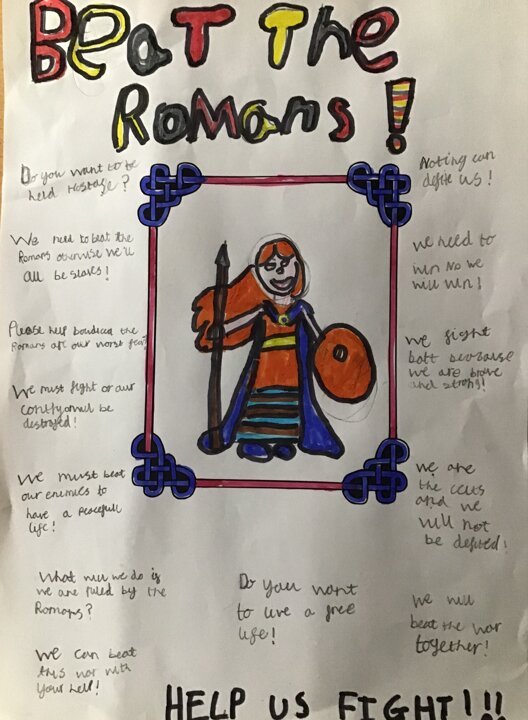 BEaT THe
RoMans!
Do you want to be
held hostage?
We need to beat the
Romans otherwise we'll
all be slaves!
Please help boudicca the
Romans are our worst fear!
We must fight or our
will be
destroyed!
We must beat
our enemies to
have a peacefull
life!
What will we do if
we are ruled by the
Romans?
We can beat
this war with
your help!
Do you want
to live a free
life!
Noting can
defite us!
We need to
win no we
will win!
We fight
batt because
we are brave
and strong!
We are
the celts
and we
will not
be defited!
We will
beat the war
together!
HELP US FIGHT!!!